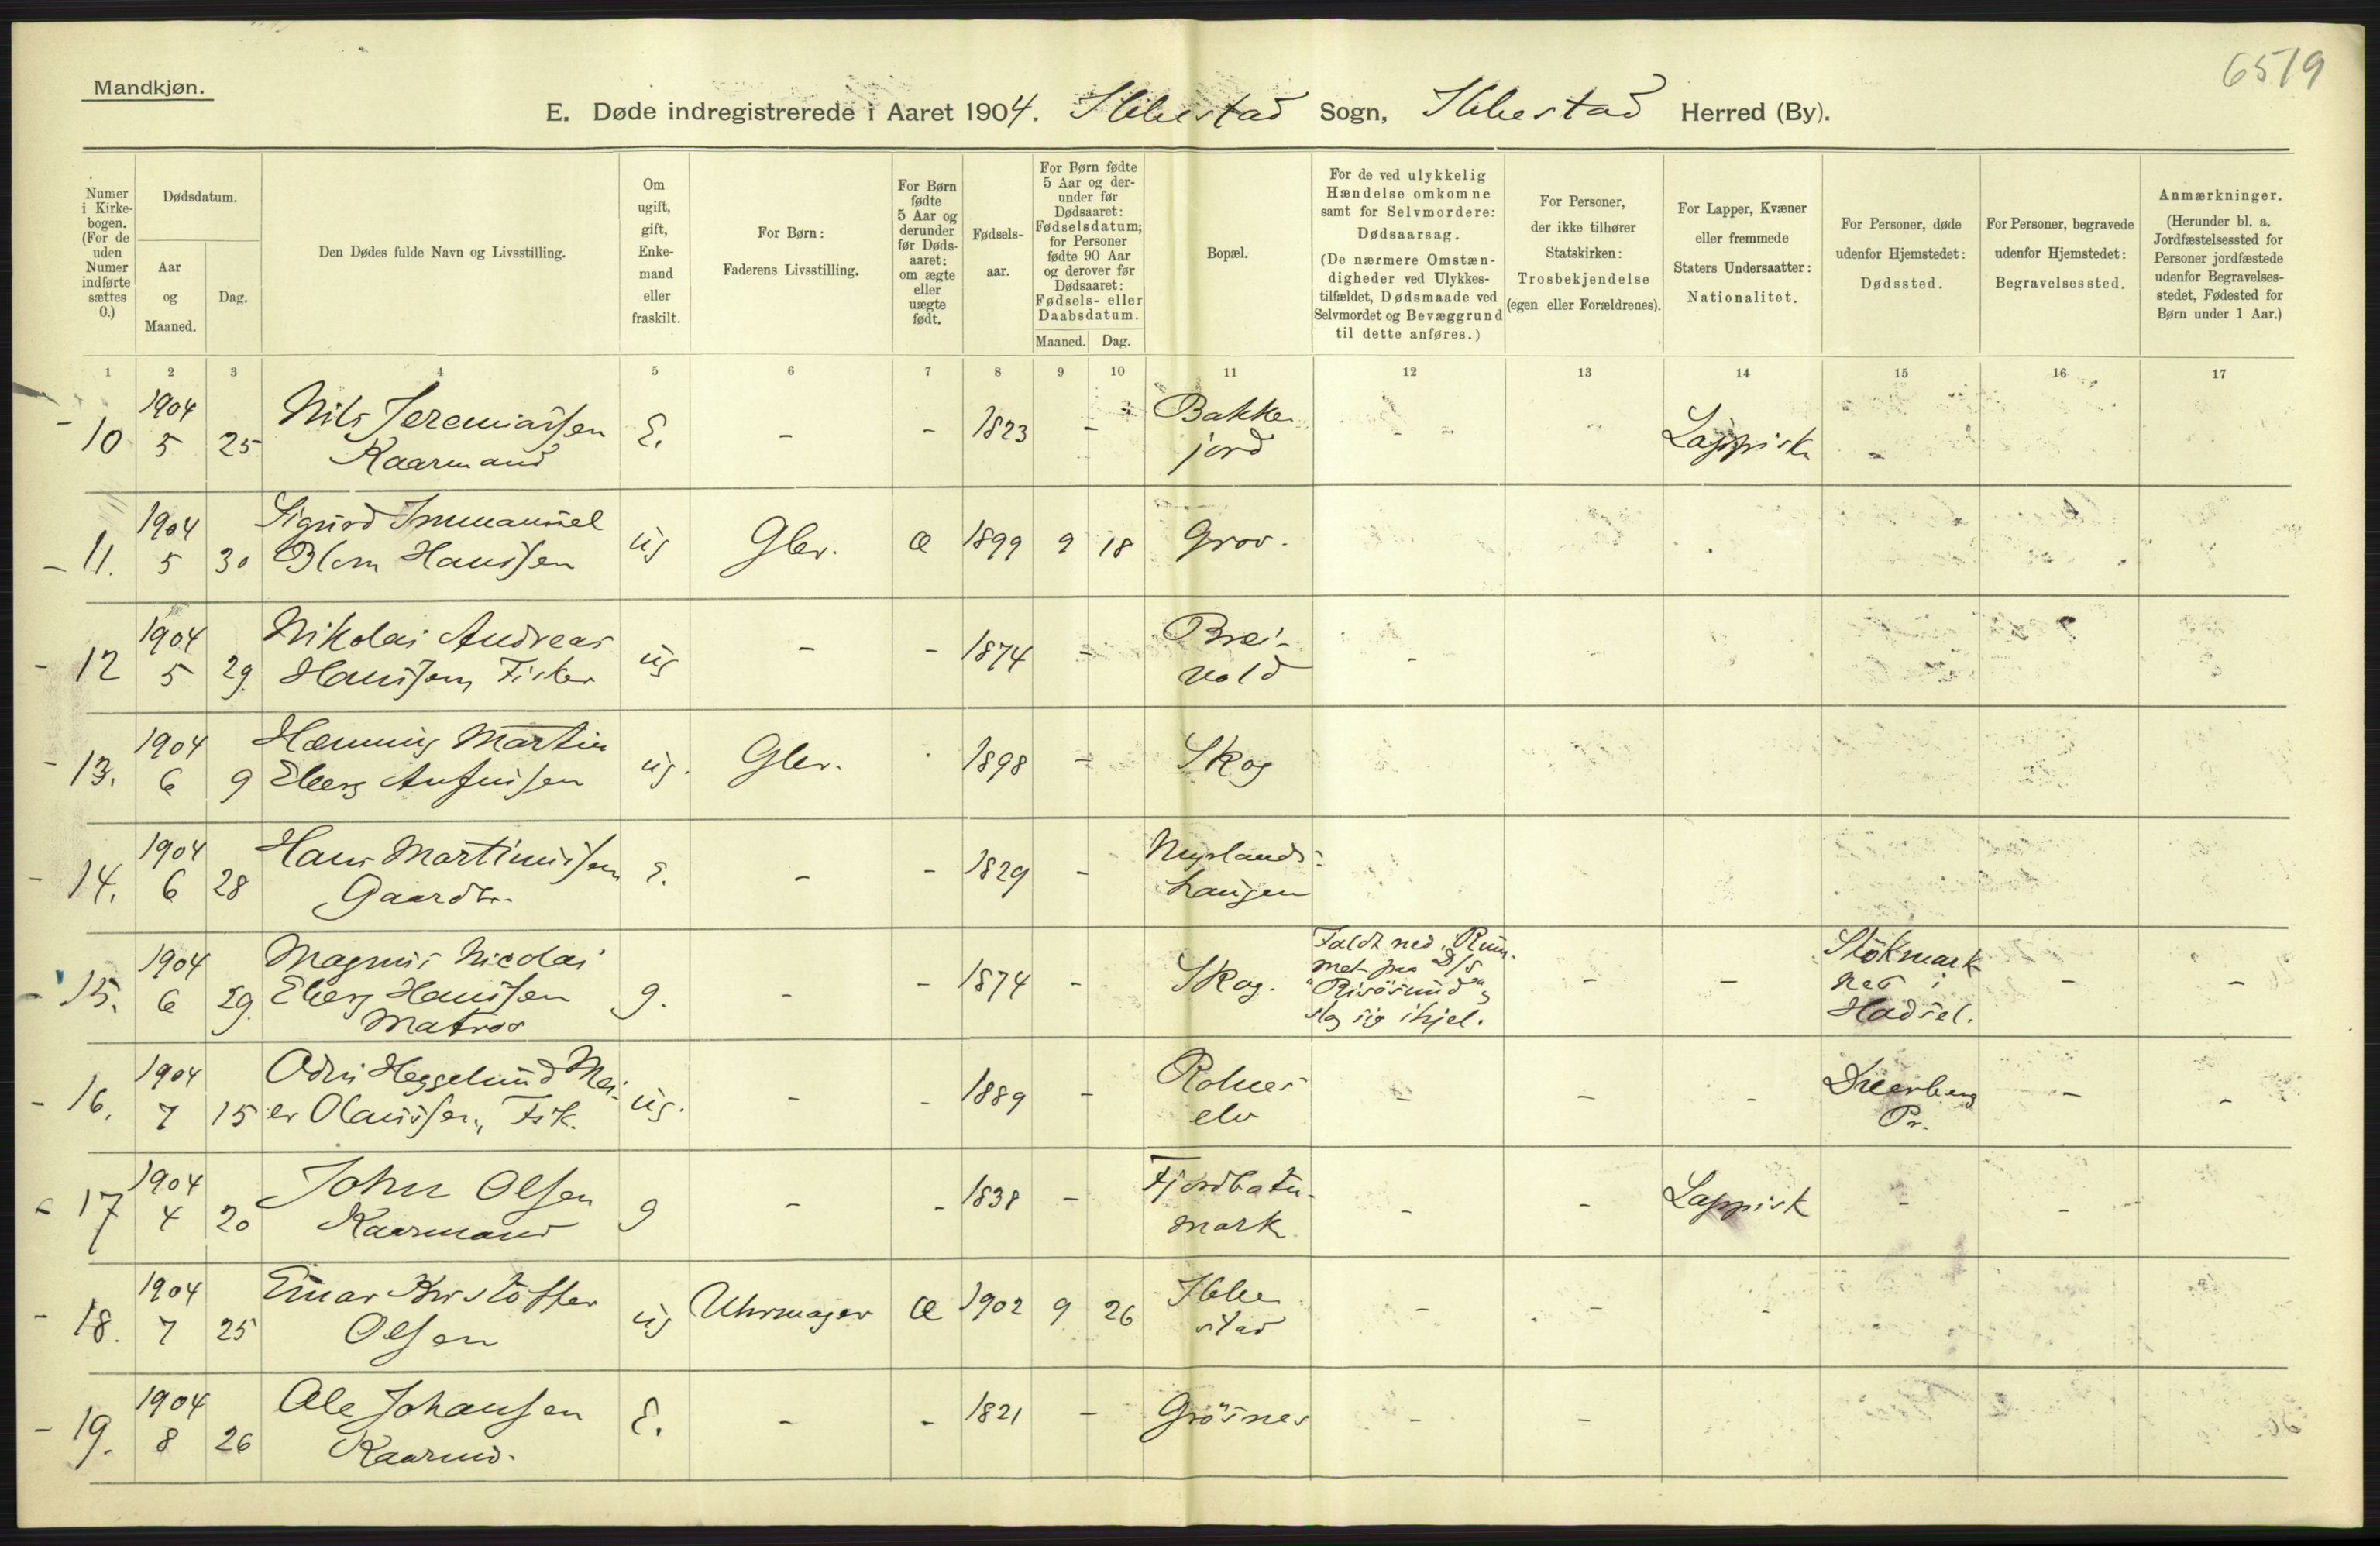 6519
Mandkjøn.
E. Døde indregistrerede i Aaret 1904. Ibbestad Sogn, Ibbestad Herred (By).
Numer i Kirke- bogen. (For de uden Numer indførte sættes 0.)
Dødsdatum.
Aar og Maaned.
Dag.
Den Dødes fulde Navn og Livsstilling.
Om ugift, gift, Enke- mand eller fraskilt.
For Børn: Faderens Livsstilling.
For Børn fødte 5 Aar og derunder før Døds- aaret: om ægte eller uægte født.
Fødsels- aar.
For Børn fødte 5 Aar og der- under før Dødsaaret: Fødselsdatum; for Personer fødte 90 Aar og derover før Dødsaaret: Fødsels- eller Daabsdatum.
Maaned. Dag.
Bopæl.
For de ved ulykkelig Hændelse omkomne samt for Selvmordere: Dødsaarsag. (De nærmere Omstæn- digheder ved Ulykkes- tilfældet, Dødsmaade ved Selvmordet og Bevæggrund til dette anføres.)
For Personer, der ikke tilhører Statskirken: Trosbekjendelse (egen eller Forældrenes).
For Lapper, Kvæner eller fremmede Staters Undersaatter: Nationalitet.
For Personer, døde udenfor Hjemstedet: Dødssted.
For Personer, begravede udenfor Hjemstedet: Begravelsessted.
Anmærkninger. (Herunder bl. a. Jordfæstelsessted for Personer jordfæstede udenfor Begravelses- stedet, Fødested for Børn under 1 Aar.)
1 2 3 4 5 6 7 8 9 10 11 12 13 14 15 16 17
- 10 1904 5 25 Nils Jeremiassen Kaarmand E. - - 1823 - - Bakke jord - - - Lappisk -
- 11. 1904 5 30 Sigurd Immanuel Blom Hanssen ug Gbr. Æ 1899 9 18 Grov.
- 12 1904 5 29. Nikolai Andreas Hanssen, Fisker ug - - 1874 - Brei- vold -
- 13. 1904 6 9 Henning Martin Eberg Anfinssen ug. Gbr. 1898 - Skog
- 14. 1904 6 28 Hans Martinussen Gaardbr. E. - - 1829 - Myrlands- haugen
- 15. 1904 6 29. Magnus Nicolai Eberg Hanssen Matros g. - - 1874 - Skog. Faldt ned i Rum- met paa D/S "Risösund" og slog sig ihjel. - - Stokmark nes i Hadsel. - -
- 16. 1904 7 15 Odin Heggelund Mei- er Olaussen, Fisk. ug. - - 1889 - Rolnes elv - - - Pr. - -
- 17 1904 4 20 John Olsen Kaarmand g - - 1838 - Fjordbotn- mark - - Lappisk - -
- 18. 1904 7 25 Einar Kristoffer Olsen ug Uhrmager Æ 1902 9 26 Ibbe stad - - -
- 19. 1904 8 26 Ole Johansen Kaarmd. E. - - 1821 - Grösnes - -